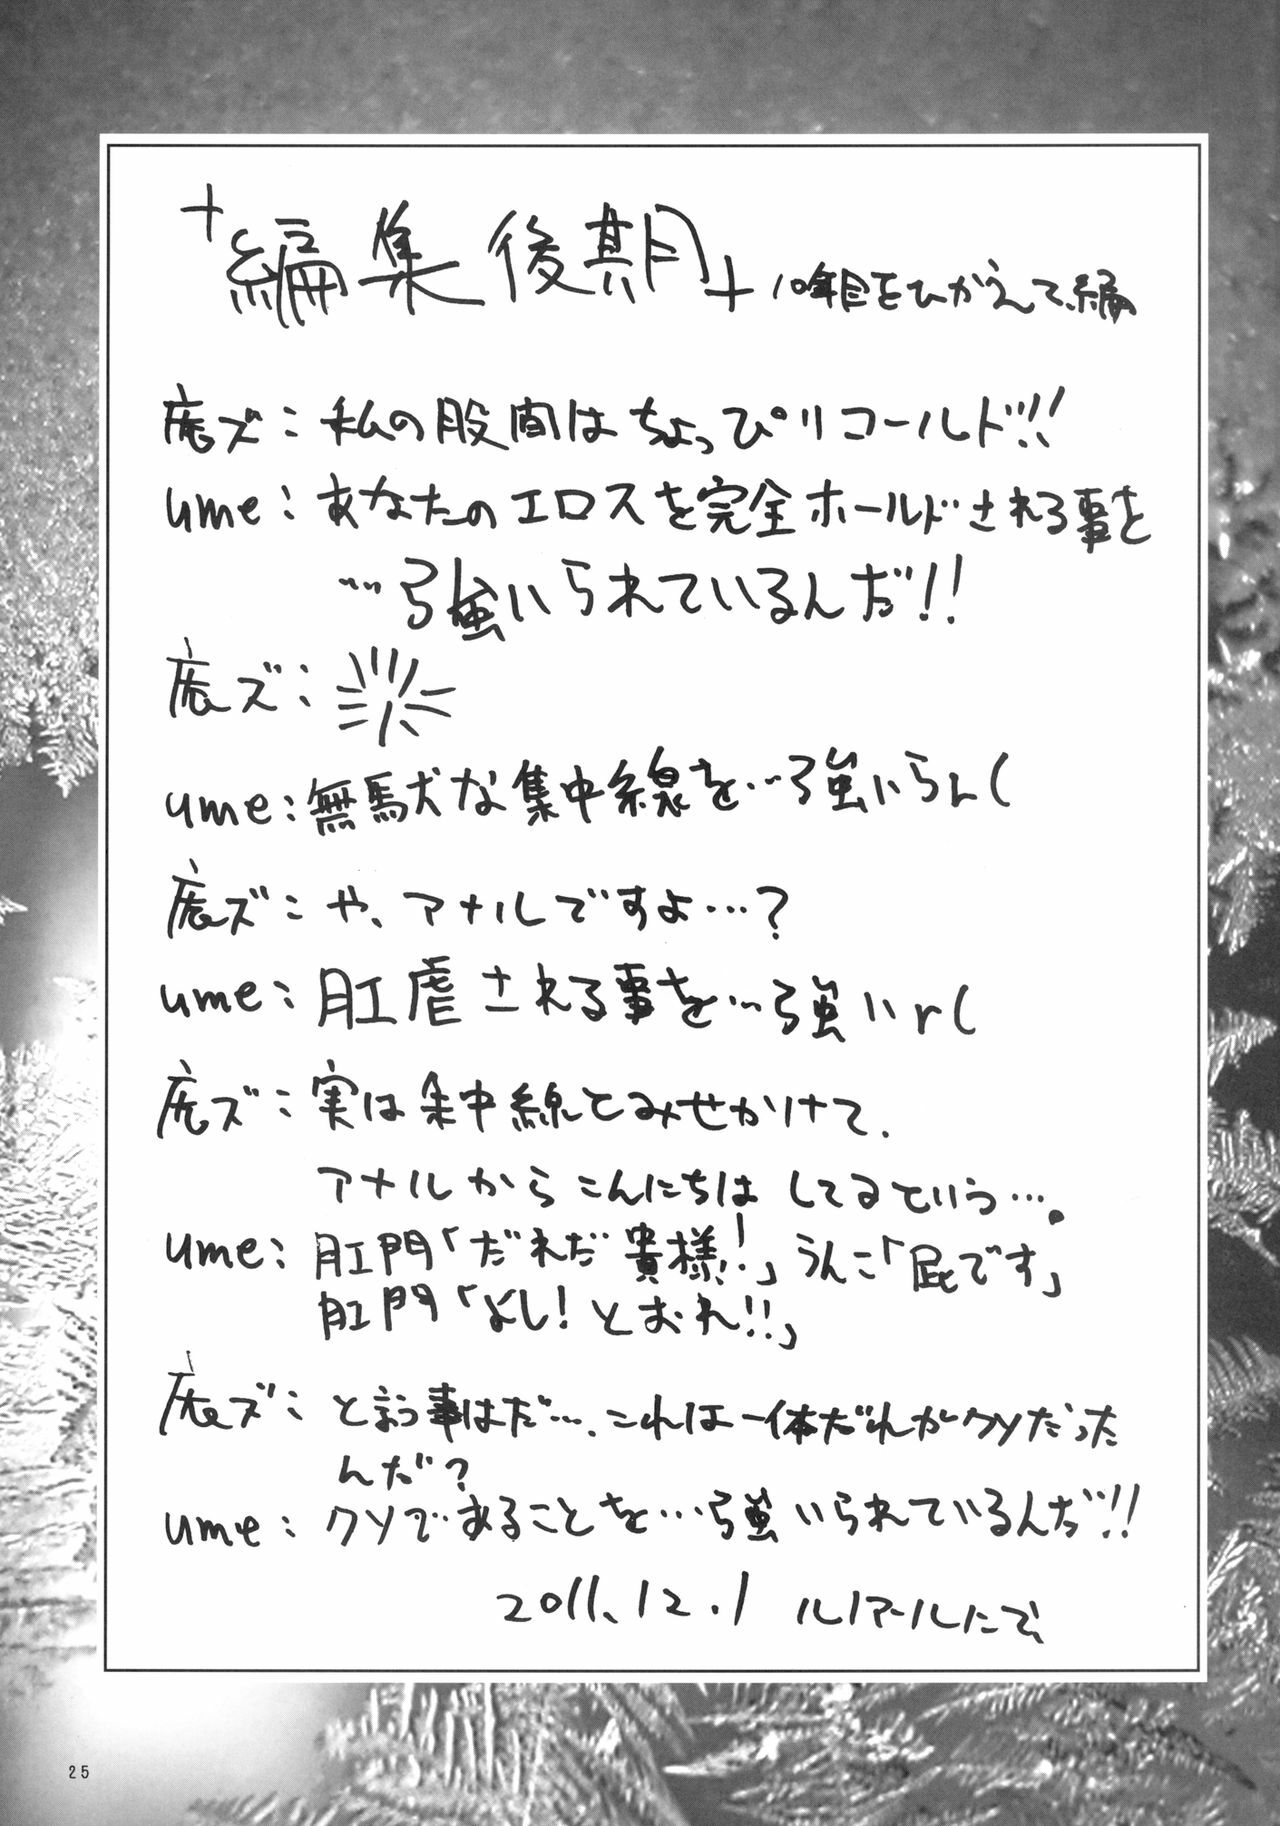 +編集後期+ 10年目をひかえて編
庶ズ:私の股間はちょっぴりコールド!!
ume:あなたのエロスを完全ホールドされる事を
…強いられているんだ!!
庶ズ:
ume:無駄な集中線を…強いらん(
庶ズ:や、アナルですよ…?
ume:肛虐される事を…強いr(
庶ズ:実は集中線とみせかけて、
アナルからこんにちはしてるという…。
ume:肛門「だれだ貴様!」うんこ「屁です」
肛門「よし!とおれ!!」
庶ズ:と言う事はだ…、これは一体だれがクソだった
んだ?
ume:クソであることを…強いられているんだ!!
2011.12.1 ルノアールにて
25